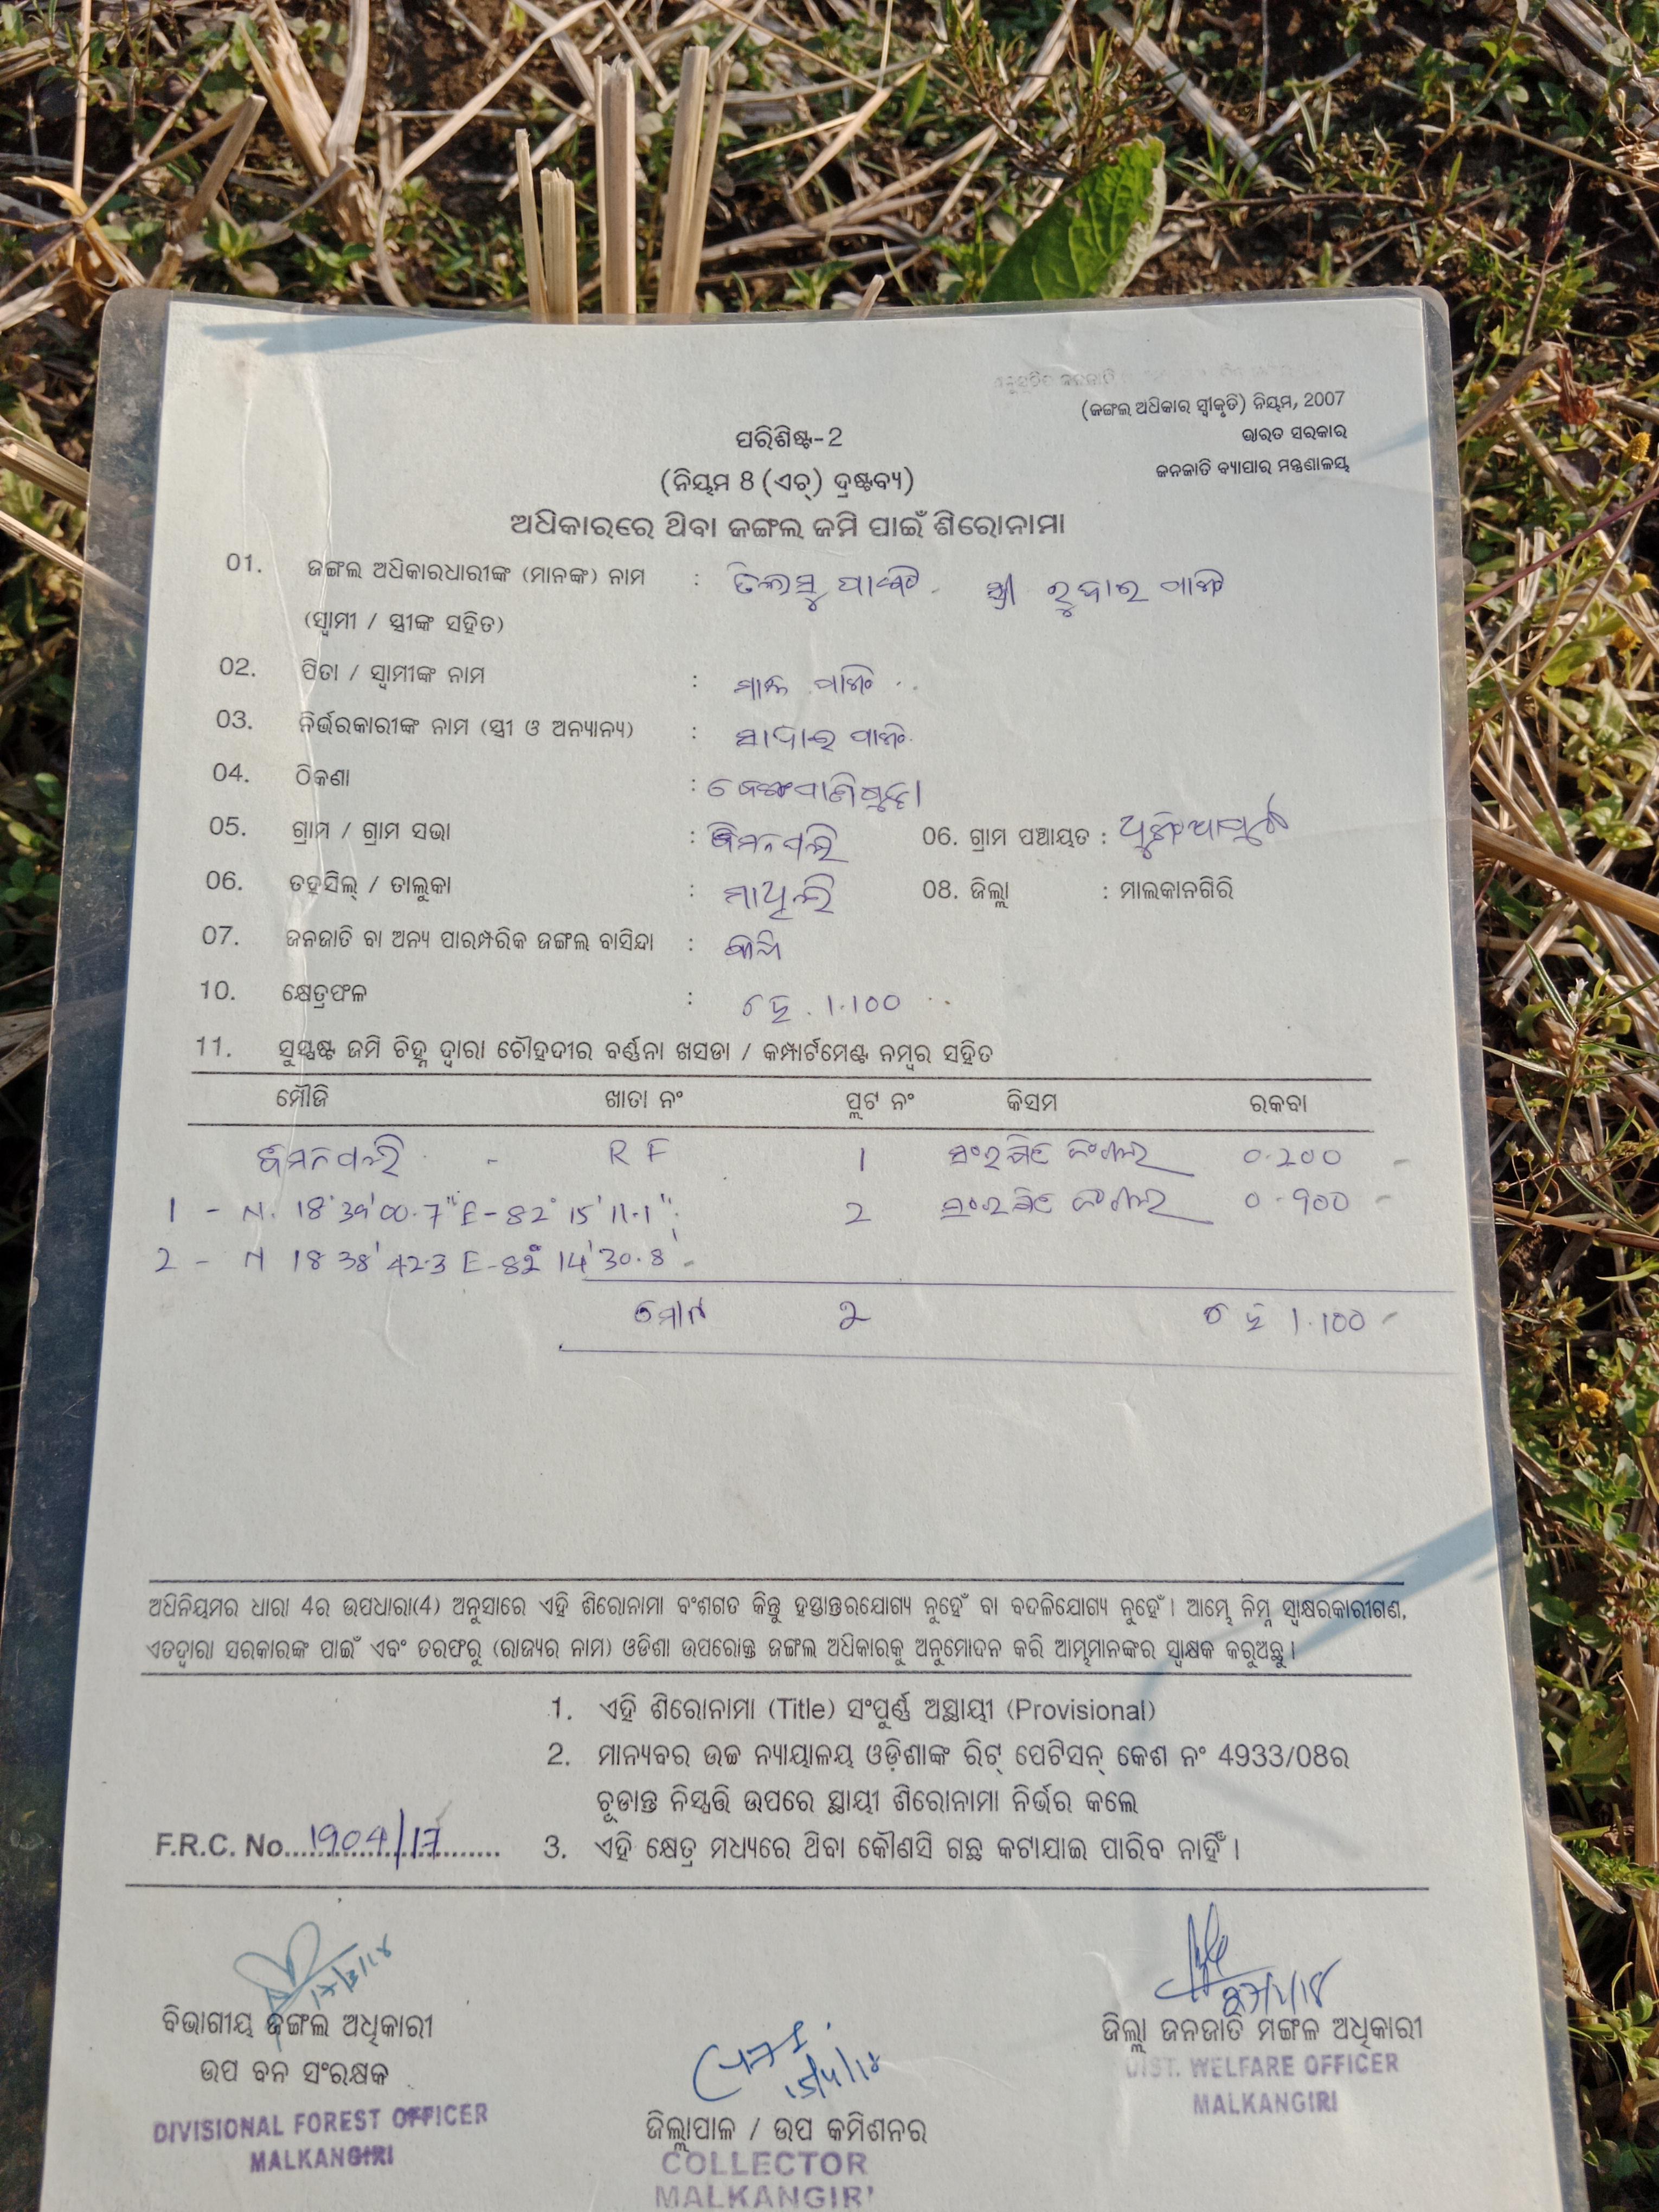 (ଜଙ୍ଗଲ ଅଧିକାର ସ୍ୱୀକୃତି) ନିୟମ, 2007
ଭାରତ ସରକାର
ଜନଜାତି ବ୍ୟାପାର ମନ୍ତ୍ରଣାଳୟ
ପରିଶିଷ୍ଟ-2
(ନିୟମ 8 (ଏଚ୍) ଦ୍ରଷ୍ଟବ୍ୟ)
ଅଧିକାରରେ ଥିବା ଜଙ୍ଗଲ ଜମି ପାଇଁ ଶିରୋନାମା
01. ଜଙ୍ଗଲ ଅଧିକାରଧାରୀଙ୍କ (ମାନଙ୍କ) ନାମ :
(ସ୍ୱାମୀ / ସ୍ତ୍ରୀଙ୍କ ସହିତ)
02. ପିତା / ସ୍ୱାମୀଙ୍କ ନାମ :
03. ନିର୍ଭରକାରୀଙ୍କ ନାମ (ସ୍ତ୍ରୀ ଓ ଅନ୍ୟାନ୍ୟ) :
04. ଠିକଣା :
05. ଗ୍ରାମ / ଗ୍ରାମ ସଭା : 06. ଗ୍ରାମ ପଞ୍ଚାୟତ :
06. ତହସିଲ୍ / ତାଲୁକା : ମାଥିଲି 08. ଜିଲ୍ଲା : ମାଲକାନଗିରି
07. ଜନଜାତି ବା ଅନ୍ୟ ପାରମ୍ପରିକ ଜଙ୍ଗଲ ବାସିନ୍ଦା :
10. କ୍ଷେତ୍ରଫଳ : ହେ. 1.100
11. ସୁସ୍ପଷ୍ଟ ଜମି ଚିହ୍ନ ଦ୍ୱାରା ଚୌହଦୀର ବର୍ଣ୍ଣନା ଖସଡା / କମ୍ପାର୍ଟମେଣ୍ଟ ନମ୍ବର ସହିତ
ମୌଜି ଖାତା ନଂ ପ୍ଲଟ ନଂ କିସମ ରକବା
R F 1 ସଂରକ୍ଷିତ ଜଂଗଲ 0.200
1 - N. 18°39'00.7" E-82° 15' 11.1" 2 ସଂରକ୍ଷିତ ଜଂଗଲ 0.900
2 - N 18 38' 42.3 E-82° 14' 30.8'
ମୋଟ 2 ହେ 1.100
ଅଧିନିୟମର ଧାରା 4ର ଉପଧାରା(4) ଅନୁସାରେ ଏହି ଶିରୋନାମା ବଂଶଗତ କିନ୍ତୁ ହସ୍ତାନ୍ତରଯୋଗ୍ୟ ନୁହେଁ ବା ବଦଳିଯୋଗ୍ୟ ନୁହେଁ । ଆମ୍ଭେ ନିମ୍ନ ସ୍ୱାକ୍ଷରକାରୀଗଣ,
ଏତଦ୍ଦ୍ୱାରା ସରକାରଙ୍କ ପାଇଁ ଏବଂ ତରଫରୁ (ରାଜ୍ୟର ନାମ) ଓଡିଶା ଉପରୋକ୍ତ ଜଙ୍ଗଲ ଅଧିକାରକୁ ଅନୁମୋଦନ କରି ଆମ୍ଭମାନଙ୍କର ସ୍ୱାକ୍ଷକ କରୁଅଛୁ ।
1. ଏହି ଶିରୋନାମା (Title) ସଂପୂର୍ଣ୍ଣ ଅସ୍ଥାୟୀ (Provisional)
2. ମାନ୍ୟବର ଉଚ୍ଚ ନ୍ୟାୟାଳୟ ଓଡ଼ିଶାଙ୍କ ରିଟ୍ ପେଟିସନ୍ କେଶ ନଂ 4933/08ର
ଚୂଡାନ୍ତ ନିସ୍ପତ୍ତି ଉପରେ ସ୍ଥାୟୀ ଶିରୋନାମା ନିର୍ଭର କଲେ
F.R.C. No. 1904/17
3. ଏହି କ୍ଷେତ୍ର ମଧ୍ୟରେ ଥିବା କୌଣସି ଗଛ କଟାଯାଇ ପାରିବ ନାହିଁ ।
17/3/18
ବିଭାଗୀୟ ଜଙ୍ଗଲ ଅଧିକାରୀ
ଉପ ବନ ସଂରକ୍ଷକ
DIVISIONAL FOREST OFFICER
MALKANGIRI
ଜିଲ୍ଲାପାଳ / ଉପ କମିଶନର
COLLECTOR
MALKANGIRI
ଜିଲ୍ଲା ଜନଜାତି ମଙ୍ଗଳ ଅଧିକାରୀ
DIST. WELFARE OFFICER
MALKANGIRI